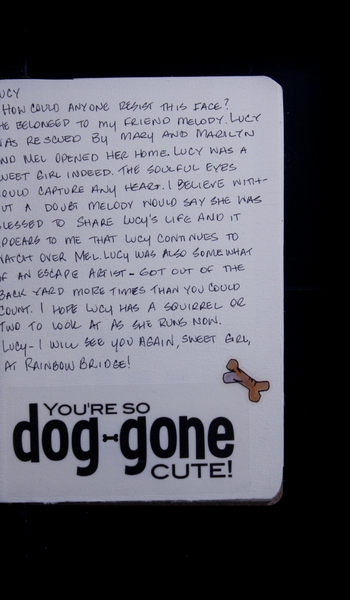 UCY
HOW COULD ANYONE RESIST THIS FACE?
HE BELONGED TO MY FRIEND MELODY. LUCY
AS RESCUED BY MARY AND MARILYN
ND MEL OPENED HER HOME. LUCY WAS A
WEET GIRL INDEED. THE SOULFUL EYES
OULD CAPTURE ANY HEART. I BELIEVE WITH-
UT A DOUBT MELODY WOULD SAY SHE WAS
LESSED TO SHARE LUCY'S LIFE AND IT
PPEARS TO ME THAT LUCY CONTINUES TO
WATCH OVER MEL. LUCY WAS ALSO SOMEWHAT
OF AN ESCAPE ARTIST - GOT OUT OF THE
BACK YARD MORE TIMES THAN YOU COULD
COUNT. I HOPE LUCY HAS A SQUIRREL OR
TWO TO LOOK AT AS SHE RUNS NOW.
LUCY - I WILL SEE YOU AGAIN, SWEET GIRL,
AT RAINBOW BRIDGE!
YOU'RE SO
dog-gone
CUTE!